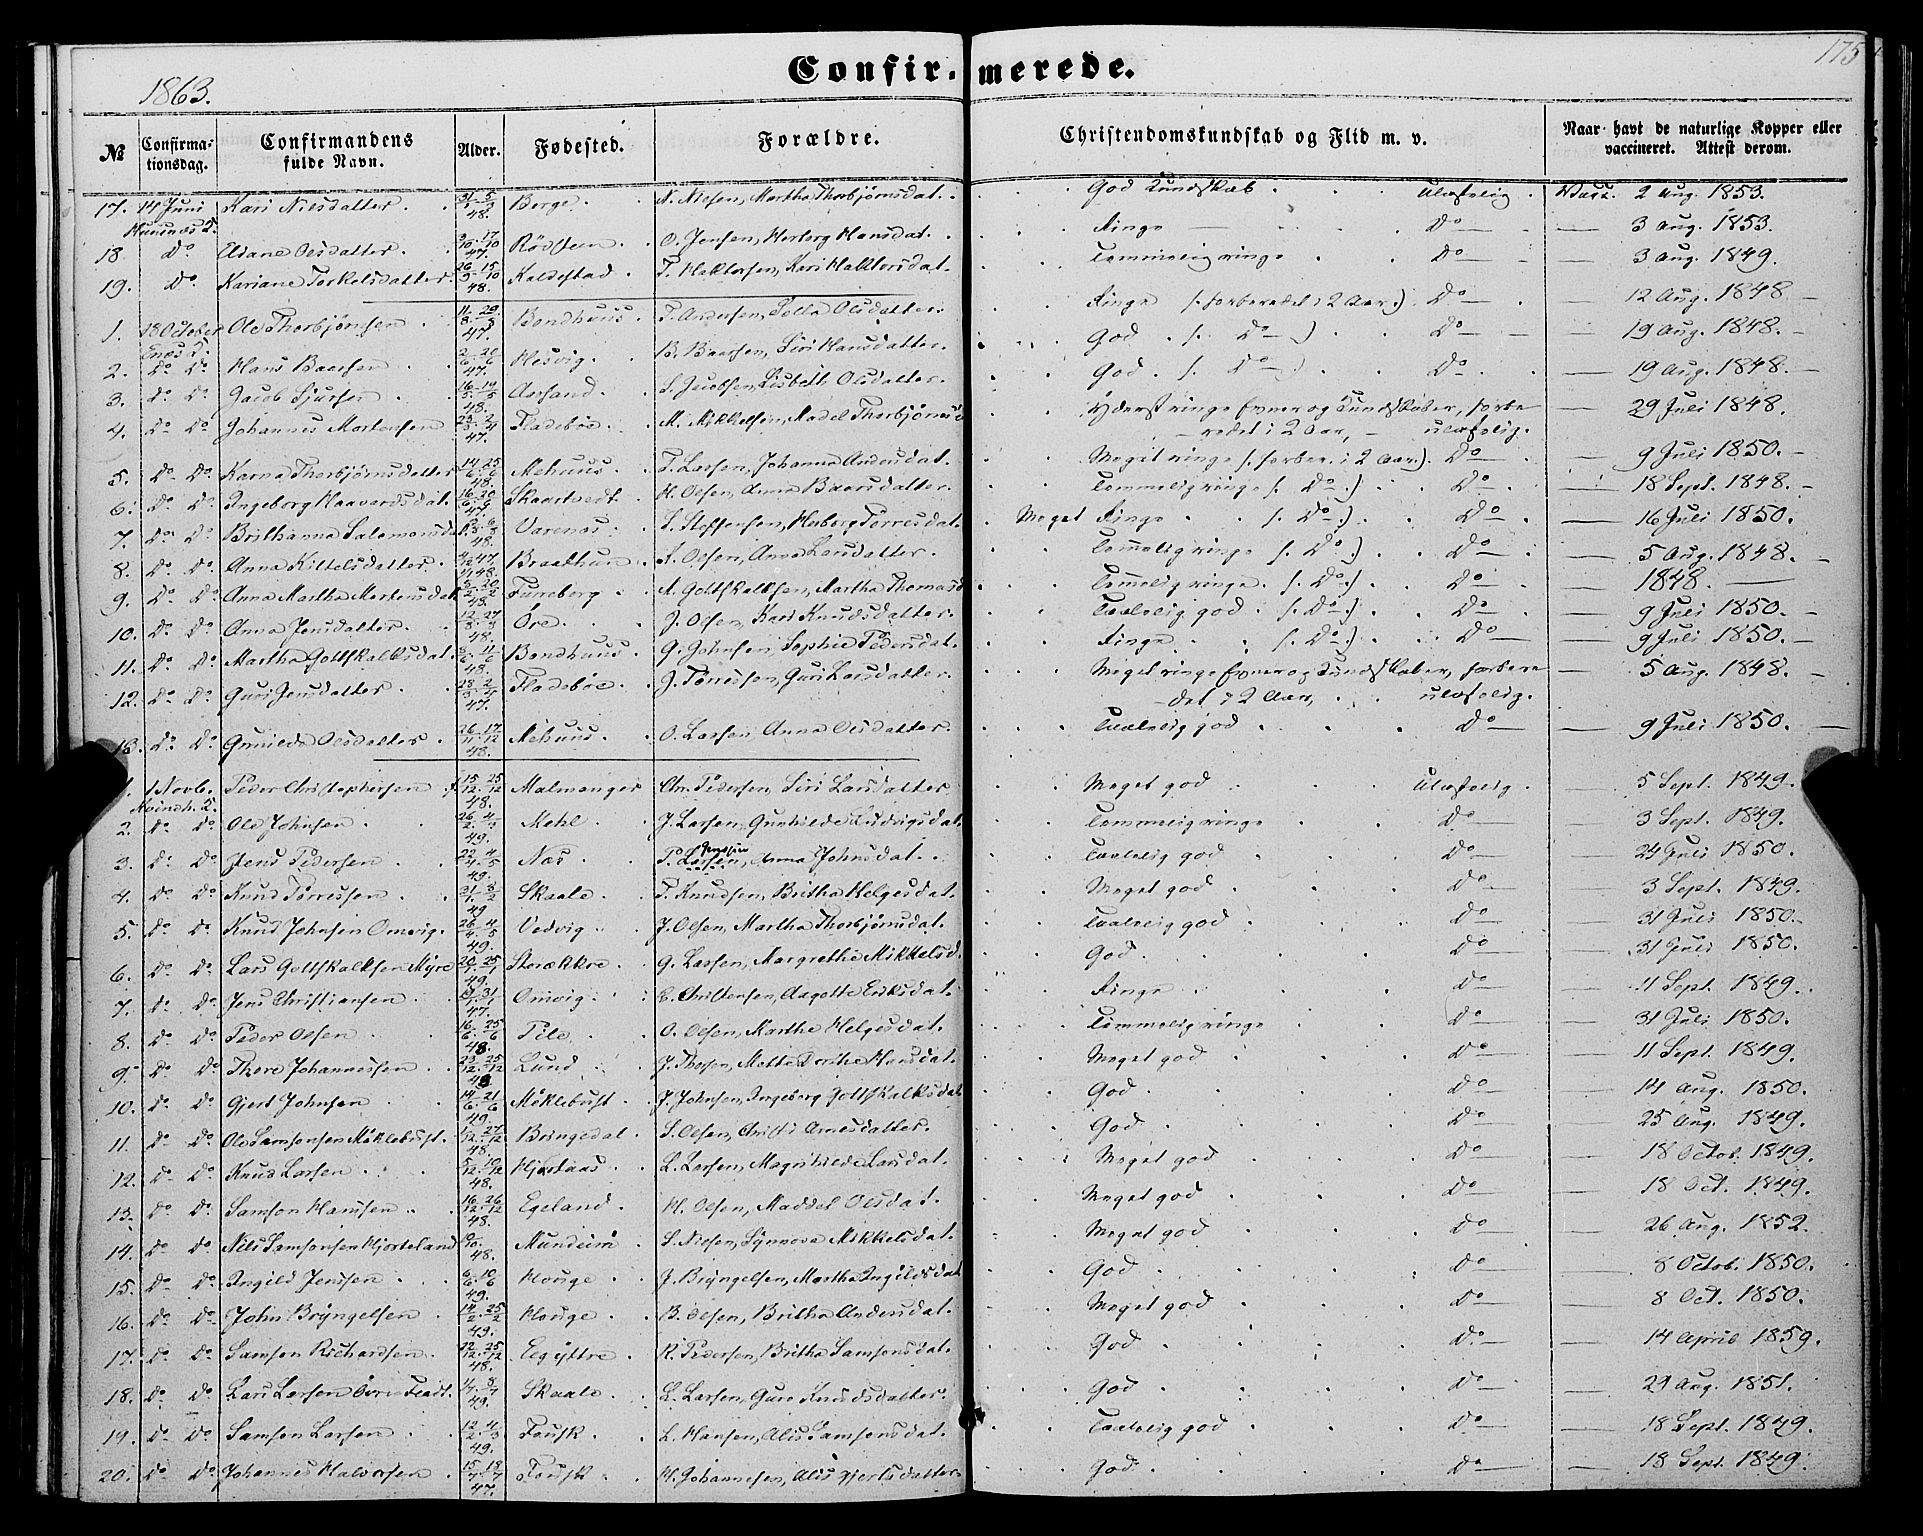 175
1863.
Confirmerede.
№ Confirmationsdag. Confirmandens fulde Navn. Alder. Fødested. Forældre. Christendomskundskab og Flid m. v. Naar havt de naturlige Kopper eller vaccineret. Attest derom.
17. 14 Juni Kari Nilsdatter. 48. Berge. N. Nilsen, Martha Thorbjørnsdat. God Kundskab. Ulastelig Vacc. 2 Aug. 1853.
18. Do Olsdatter 47. O. Jensen, Herborg Hansdat. Ringe Do 3 Aug. 1853.
19. Do Kariane Torkelsdatter. 48. Kaldestad. Temmelig ringe Do 3 Aug. 1849.
1. 18 October Ole Thorbjørnsen 47. Bondhuus. T. Andersen, Olsdatter. Ringe (forberedet i 2 Aar.) Do 12 Aug. 1848.
2. Do Do Hans Baarsen 47. Hesvig. B. Baarsen, Siri Hansdatter. God (Do) Do 19 Aug. 1848.
3. Do Do Jacob Sjursen 48. S. Jacobsen, Lisbeth Olsdatter. God. (Do) Do 19 Aug. 1848.
4. Do Do Johannes Mortensen 47. Fladebøe. M. Mikkelsen, Madel Thorbjørnsd. Yderst ringe Evner og Kundskaber, forbe-
redet i 2 Aar, ulastelig. 29 Juli 1848.
5. Do Do Karna Thorbjørnsdatter 48. Mehuus. T. Larsen, Johanna Andersdat. Meget ringe (forber. i 2 Aar.) Do 9 Juli 1850.
6. Do Do Ingeborg Haavardsdat. 47. Skaartvedt. H. Olsen, Anna Baarsdatter. Temmelig ringe (Do.) Do 18 Sept. 1848.
7. Do Do Brithanna Salamonsdat. 48. S. Steffensen, Herborg Torresdat. Meget Ringe (Do.) Do 16 Juli 1850.
8. Do Do Anna Kittelsdatter. 48. Braathun. K. Olsen, Anna Larsdatter. Temmelig ringe (Do.) Do 5 Aug. 1848.
9. Do Do Anna Martha Mortensdat. 48. Tuneborg. M. Gottskalksen, Martha Thomasd. Temmelig ringe. (Do.) Do 1848.
10. Do Do Anna Jensdatter. 48. Øre. J. Olsen, Kari Knudsdatter. Taalelig god. (Do.) Do 9 Juli 1850.
11. Do Do Martha Gottskalksdat. 48. Bondhuus. G. Johnsen, Sophie Pedersdat. Ringe (Do.) Do 9 Juli 1850.
12. Do Do Guri Jensdatter 47. Fladebøe. J. Tønnesen, Guri Larsdatter. Meget ringe Evner og Kundskaber, forbere-
det i 2 Aar, ulastelig. 5 Aug. 1848.
13. Do Do Gunilda Olsdatter. 48. Mehuus. O. Larsen, Anna Olsdatter. Taalelig god Do 9 Juli 1850.
1. 1 Novb. Peder Christophersen 48. Malmanger Chr. Pedersen, Siri Larsdatter Meget god Ulastelig. 5 Sept. 1849.
2. Do Do Ole Johnsen 49. Mehl. J. Larsen, Gunhilde Ludvigsdat. Temmelig ringe Do 3 Sept. 1849.
3. Do Do Jens Pedersen 49. Næs. P. Larsen, Jenssen Anna Johnsdat. Taalelig god Do 24 Juli 1850.
4. Do Do Knud Torressen 49 Skaale. T. Knudsen, Britha Helgesdat. Meget god Do 3 Sept. 1849.
5. Do Do Knud Johnsen Omvig. 49. Vedvig J. Olsen, Martha Thorbjørnsdat. Taalelig god Do 31 Juli 1850.
6. Do Do Lars Gottskalksen Myre 49. Storækkre. G. Larsen, Margrethe Mikkelsd. God. Do 31 Juli 1850.
7. Do Do Jens Christiansen 47. Omvig. C. Christensen, Aagotte Eriksdat. Ringe Do 11 Sept. 1849.
8. Do Do Peder Olsen 48 Tile O. Olsen, Marthe Helgesdat. Temmelig ringe Do 31 Juli 1850.
9. Do Do Thore Johannessen 48 Lund J. Thosen, Mette Dorthe Hansdat. Meget god Do 11 Sept. 1849.
10. Do Do Gjert Johnsen 49. Møklebust. J. Johnsen, Ingeborg Gottskalksdat God. Do 14 Aug. 1850.
11. Do Do Ole Samsonsen Møklebust. 48. Bringedal. S. Olsen, Christi Arnesdatter. God. Do 25 Aug. 1849.
12. Do Do Knud Larsen 48. Hjortaas. L. Larsen, Magnhilde Larsdat. Meget god Do 18 Octob. 1849.
13. Do Do Samson Hansen 48. Egeland. H. Olsen, Maddel Olsdat. Meget god Do 18 Oct. 1849.
14. Do Do Nils Samsonsen Hjorteland 48. Mundeim S. Nilsen, Synnova Mikkelsdat. Meget god Do 26 Aug. 1852.
15. Do Do Ingild Jenssen 49. Houge J. Bryngelsen, Martha Ingildsdat. God. Do 8 Octob. 1850.
16. Do Do John Bryngelsen 49. Houge. B. Olsen, Britha Andersdat. Meget god Do 8 Oct. 1850.
17. Do Do Samson Richardsen. 48. R. Pedersen, Britha Samsonsdat. God Do 14 April 1859.
18. Do Do Lars Larsen 49. Skaale. L. Larsen, Guro Knudsdatter. God Do 29 Aug. 1851.
19. Do Do Samson Larsen 49. Tousk. L. Hansen, Alis Samsonsdat. Taalelig god Do 18 Sept. 1849.
20. Do Do Johannes Halvorsen 47. Tousk. H. Johannesen, Alis Gjertsdatter God. Do 18 Sept. 1849.